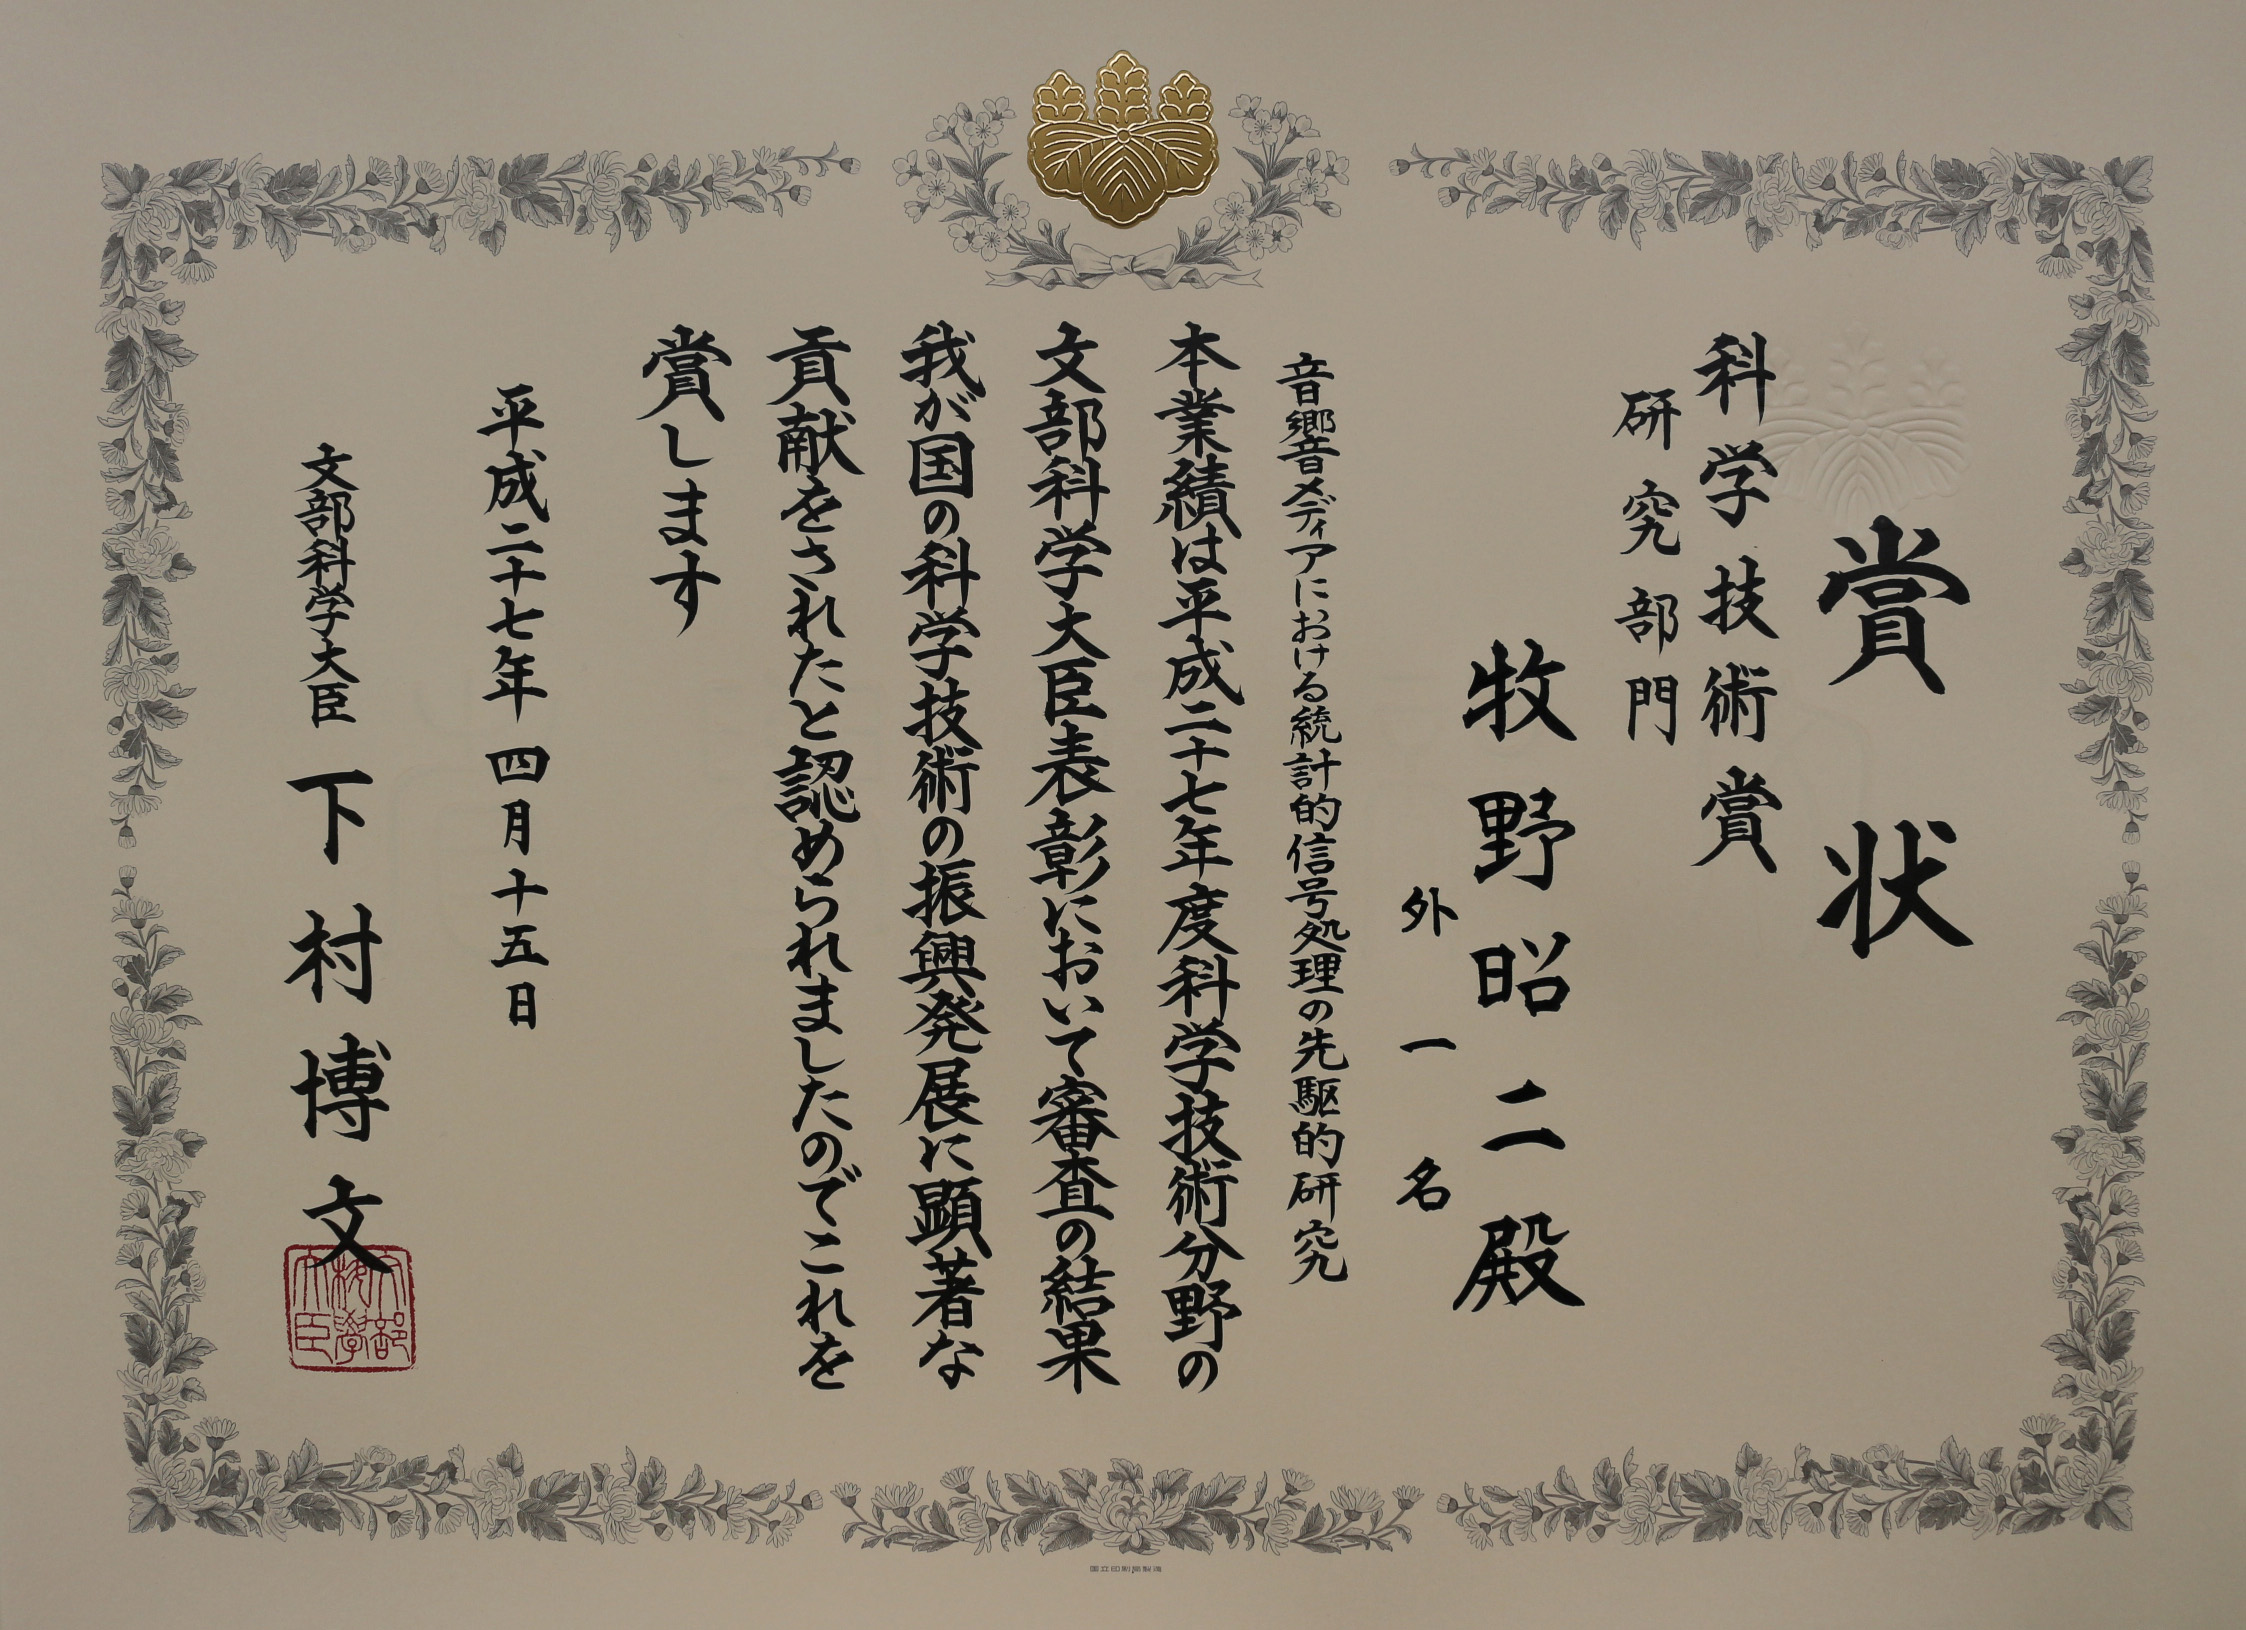 賞状
科学技術賞
研究部門
牧野昭二殿
外一名
音響音メディアにおける統計的信号処理の先駆的研究
本業績は平成二十七年度科学技術分野の
文部科学大臣表彰において審査の結果
我が国の科学技術の振興発展に顕著な
貢献をされたと認められましたのでこれを
賞します
平成二十七年四月十五日
文部科学大臣 下村博文
文部科学大臣
国立印刷局製造